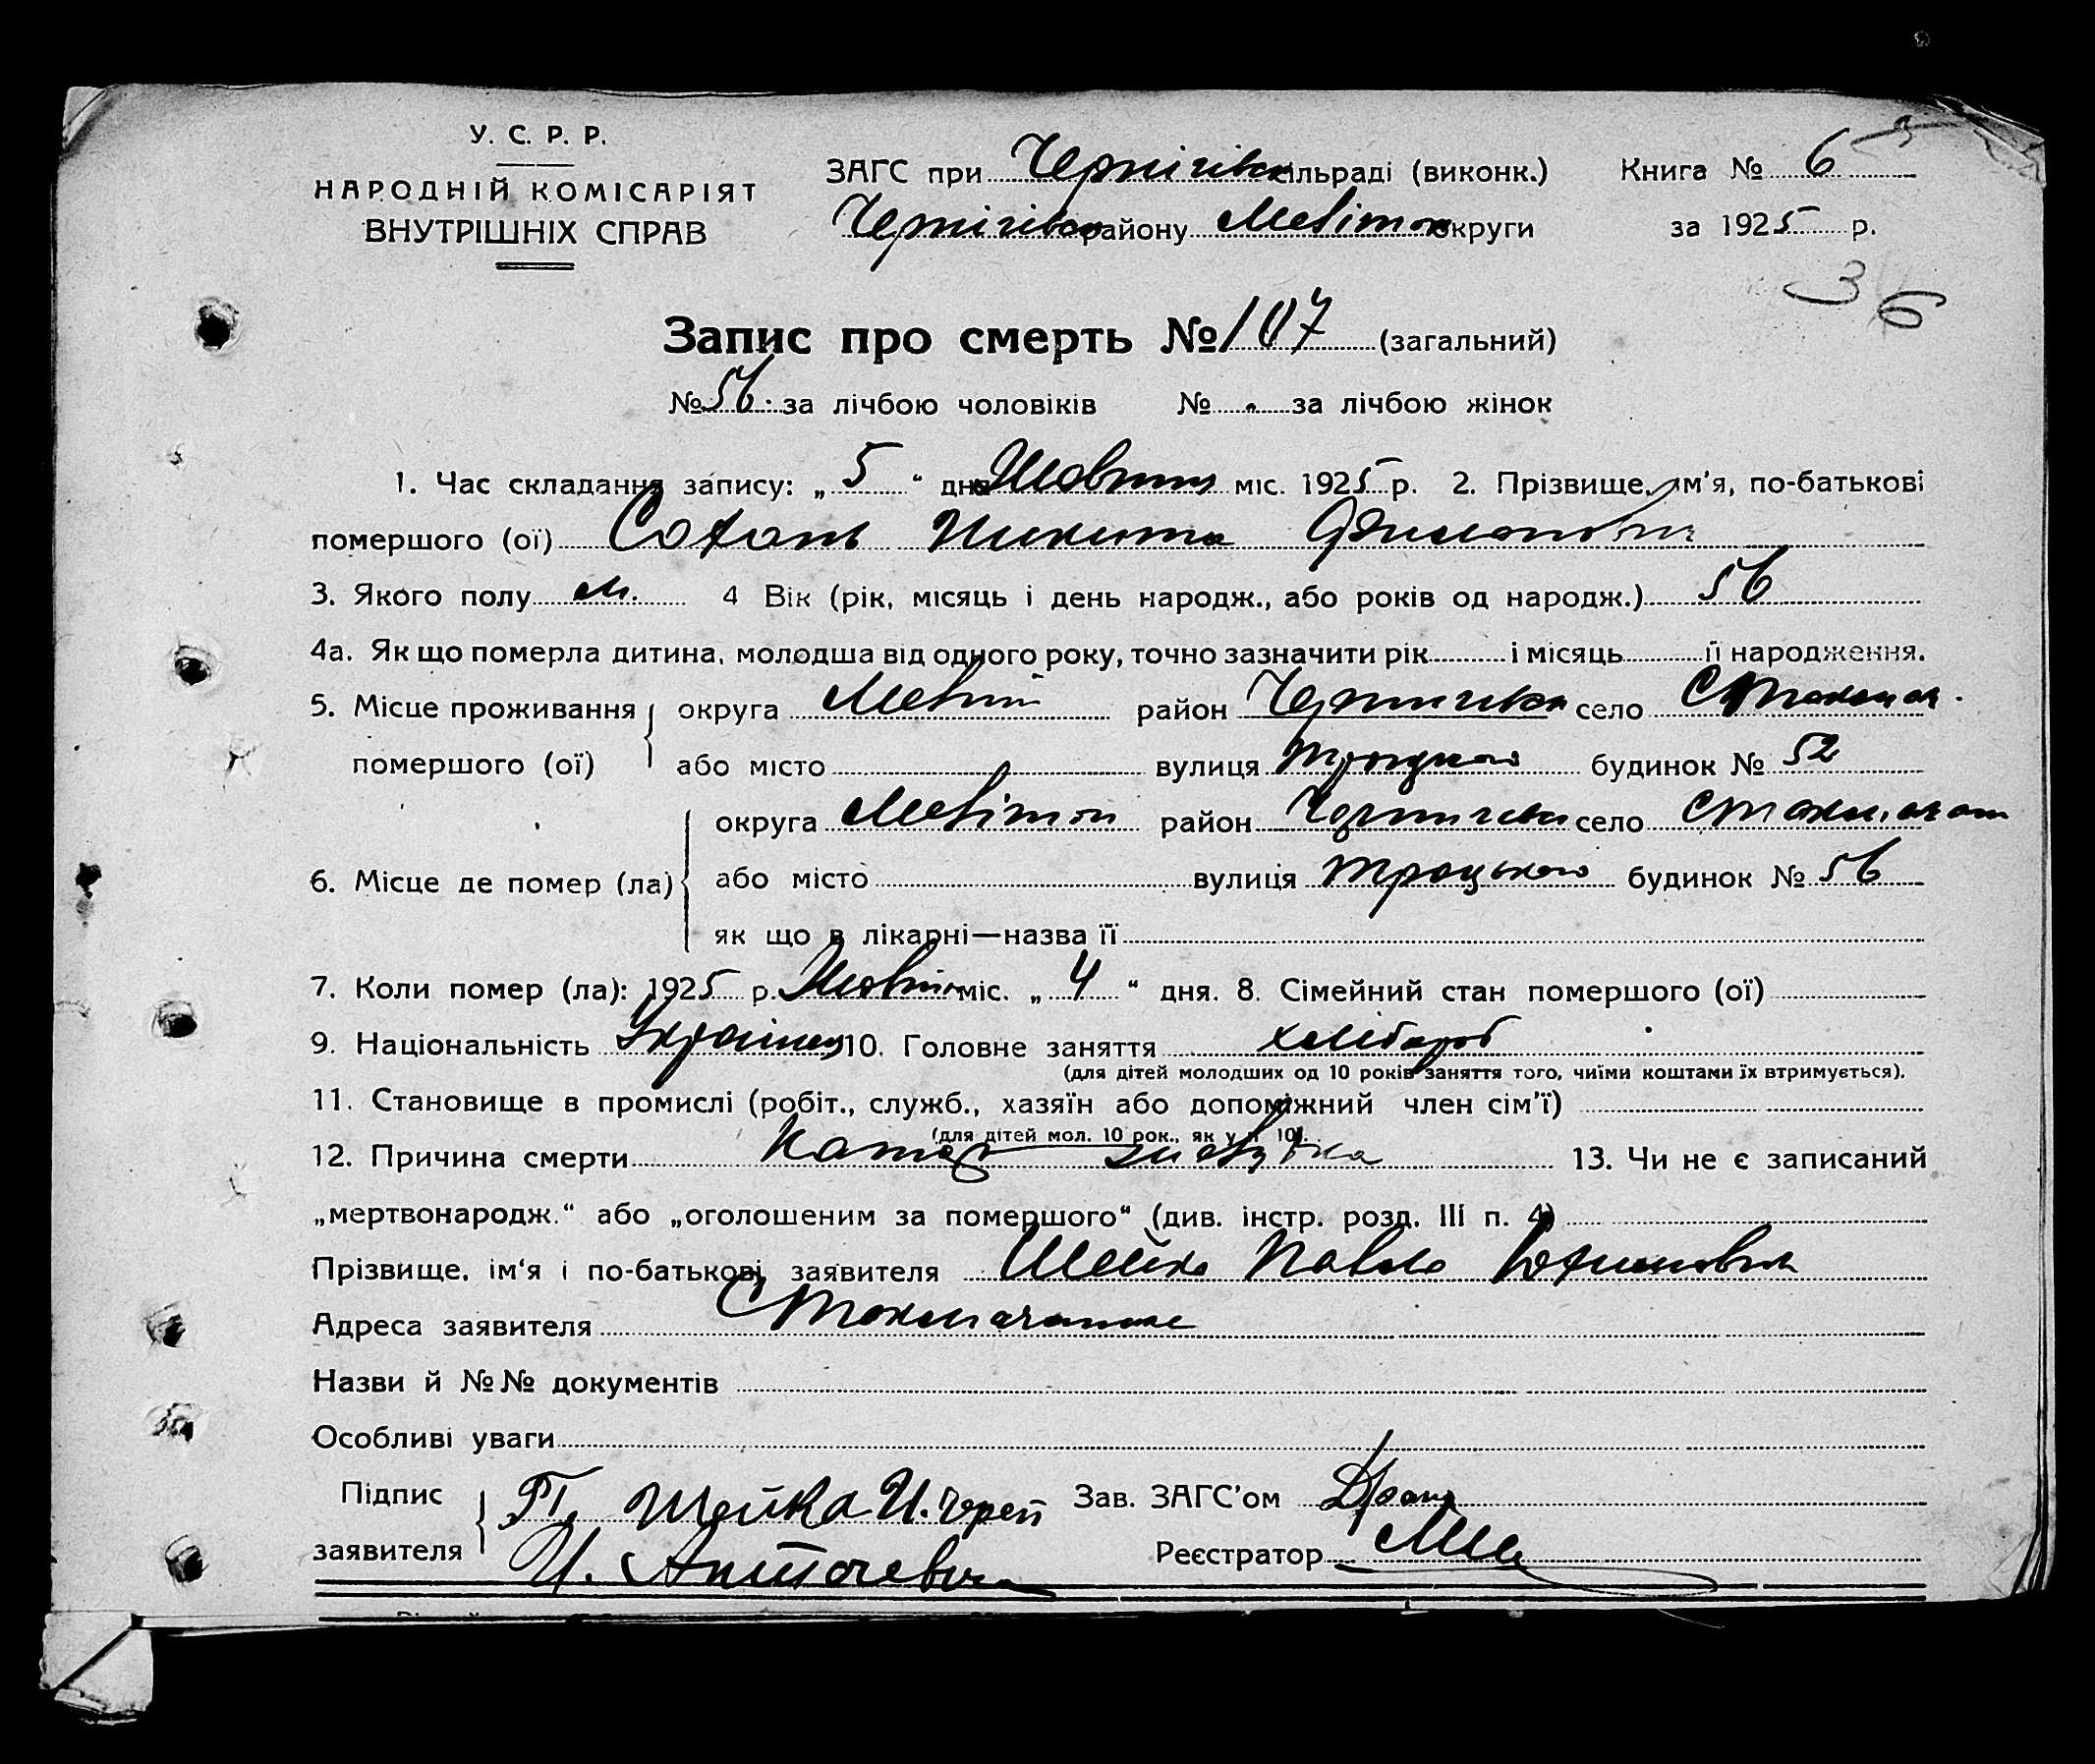 У. С. Р. Р.
НАРОДНІЙ КОМІСАРІЯТ
ВНУТРІШНІХ СПРАВ
ЗАГС при Чернігівк сільраді (виконк.)
Чернігівк району Мелітоп округи
Книга № 6
за 1925 р.
36
Запис про смерть № 107 (загальний)
№ 56 за лічбою чоловіків № за лічбою жінок
1. Час складання запису: „ 5 “ дня Жовтня міс. 1925 р. 2. Прізвище, ім'я, по-батькові
помершого (ої) Никита
3. Якого полу м. 4 Вік (рік, місяць і день народж., або років од народж.) 56
4а. Як що померла дитина, молодша від одного року, точно зазначити рік і місяць її народження.
5. Місце проживання округа Меліт район Чернигівк село С Токмач.
помершого (ої) або місто вулиця Троцького будинок № 52
округа Мелітоп район Чернигівк село
6. Місце де помер (ла) або місто вулиця Троцького будинок № 56
як що в лікарні—назва її
7. Коли помер (ла): 1925 р. Жовтня міс. „ 4 “ дня. 8. Сімейний стан помершого (ої)
9. Національність Українец 10. Головне заняття хлібороб
(для дітей молодших од 10 років заняття того, чиїми коштами їх втримується).
11. Становище в промислі (робіт., служб., хазяїн або допоміжний член сім'ї)
(для дітей мол. 10 рок., як у п 10).
12. Причина смерти Катар желудка 13. Чи не є записаний
„мертвонародж.“ або „оголошеним за помершого“ (див. інстр. розд. III п. 4)
Прізвище, ім'я і по-батькові заявителя Шейко Павло
Адреса заявителя
Назви й №№ документів
Особливі уваги
Підпис Шейка Зав. ЗАГС'ом
заявителя Реєстратор